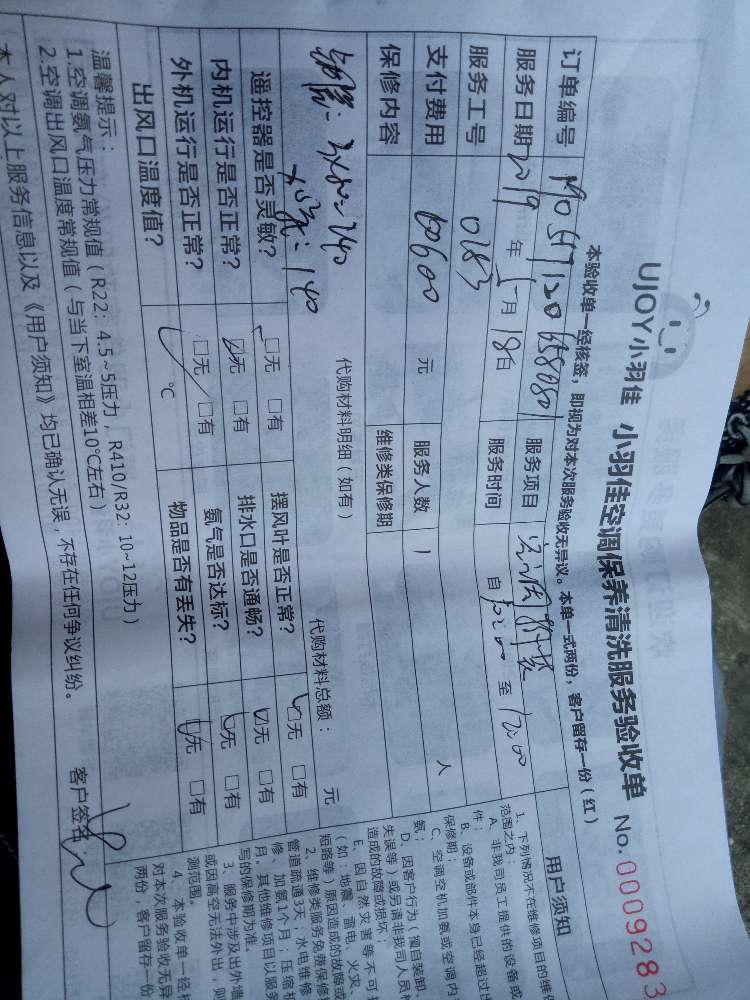 UJOY小羽佳 小羽佳空调保养清洗服务验收单 No.0009283
本验收单一经核签，即视为对本次服务验收无异议。本单一式两份，客户留存一份（红）
订单编号 服务项目
服务日期 2019 年 5 月 18 日 服务时间 自 至 12:00
服务工号 0183
支付费用 元 服务人数 1 人
保修内容 维修类保修期
代购材料明细（如有） 代购材料总额： 元
3×80=240
140
遥控器是否灵敏？ □无 □有 摆风叶是否正常？ □无 □有
内机运行是否正常？ □无 □有 排水口是否通畅？ □无 □有
外机运行是否正常？ □无 □有 氨气是否达标？ □无 □有
出风口温度值？ ℃ 物品是否有丢失？ □无 □有
温馨提示：
1.空调氨气压力常规值（R22：4.5~5压力，R410/R32: 10~12压力）
2.空调出风口温度常规值（与当下室温相差10℃左右）
本人对以上服务信息以及《用户须知》均已确认无误，不存在任何争议纠纷。
客户签名：
用户须知
1、下列情况不在维修项目的维保
范围之内：
A、非我司员工提供的设备或
件；
B、设备或部件本身已经超过
保修期；
C、空调空机加氨或空调内
氨；
D、因客户行为（擅自装卸、
失误等）或另请非我司人员
造成的故障或损坏；
E、因自然灾害等不可
（如：地震、雷电、火灾、
短路等）原因造成的故障或
2、维修类服务免费保修
管道疏通3天；水电维修
修、加氨1个月；压缩机
月。其他维修项目以服务
写的保修期为准。
3、服务中涉及出外墙
或因高空无法外出，则
测范围。
4、本验收单一经核
对本次服务验收无异
两份，客户留存一份